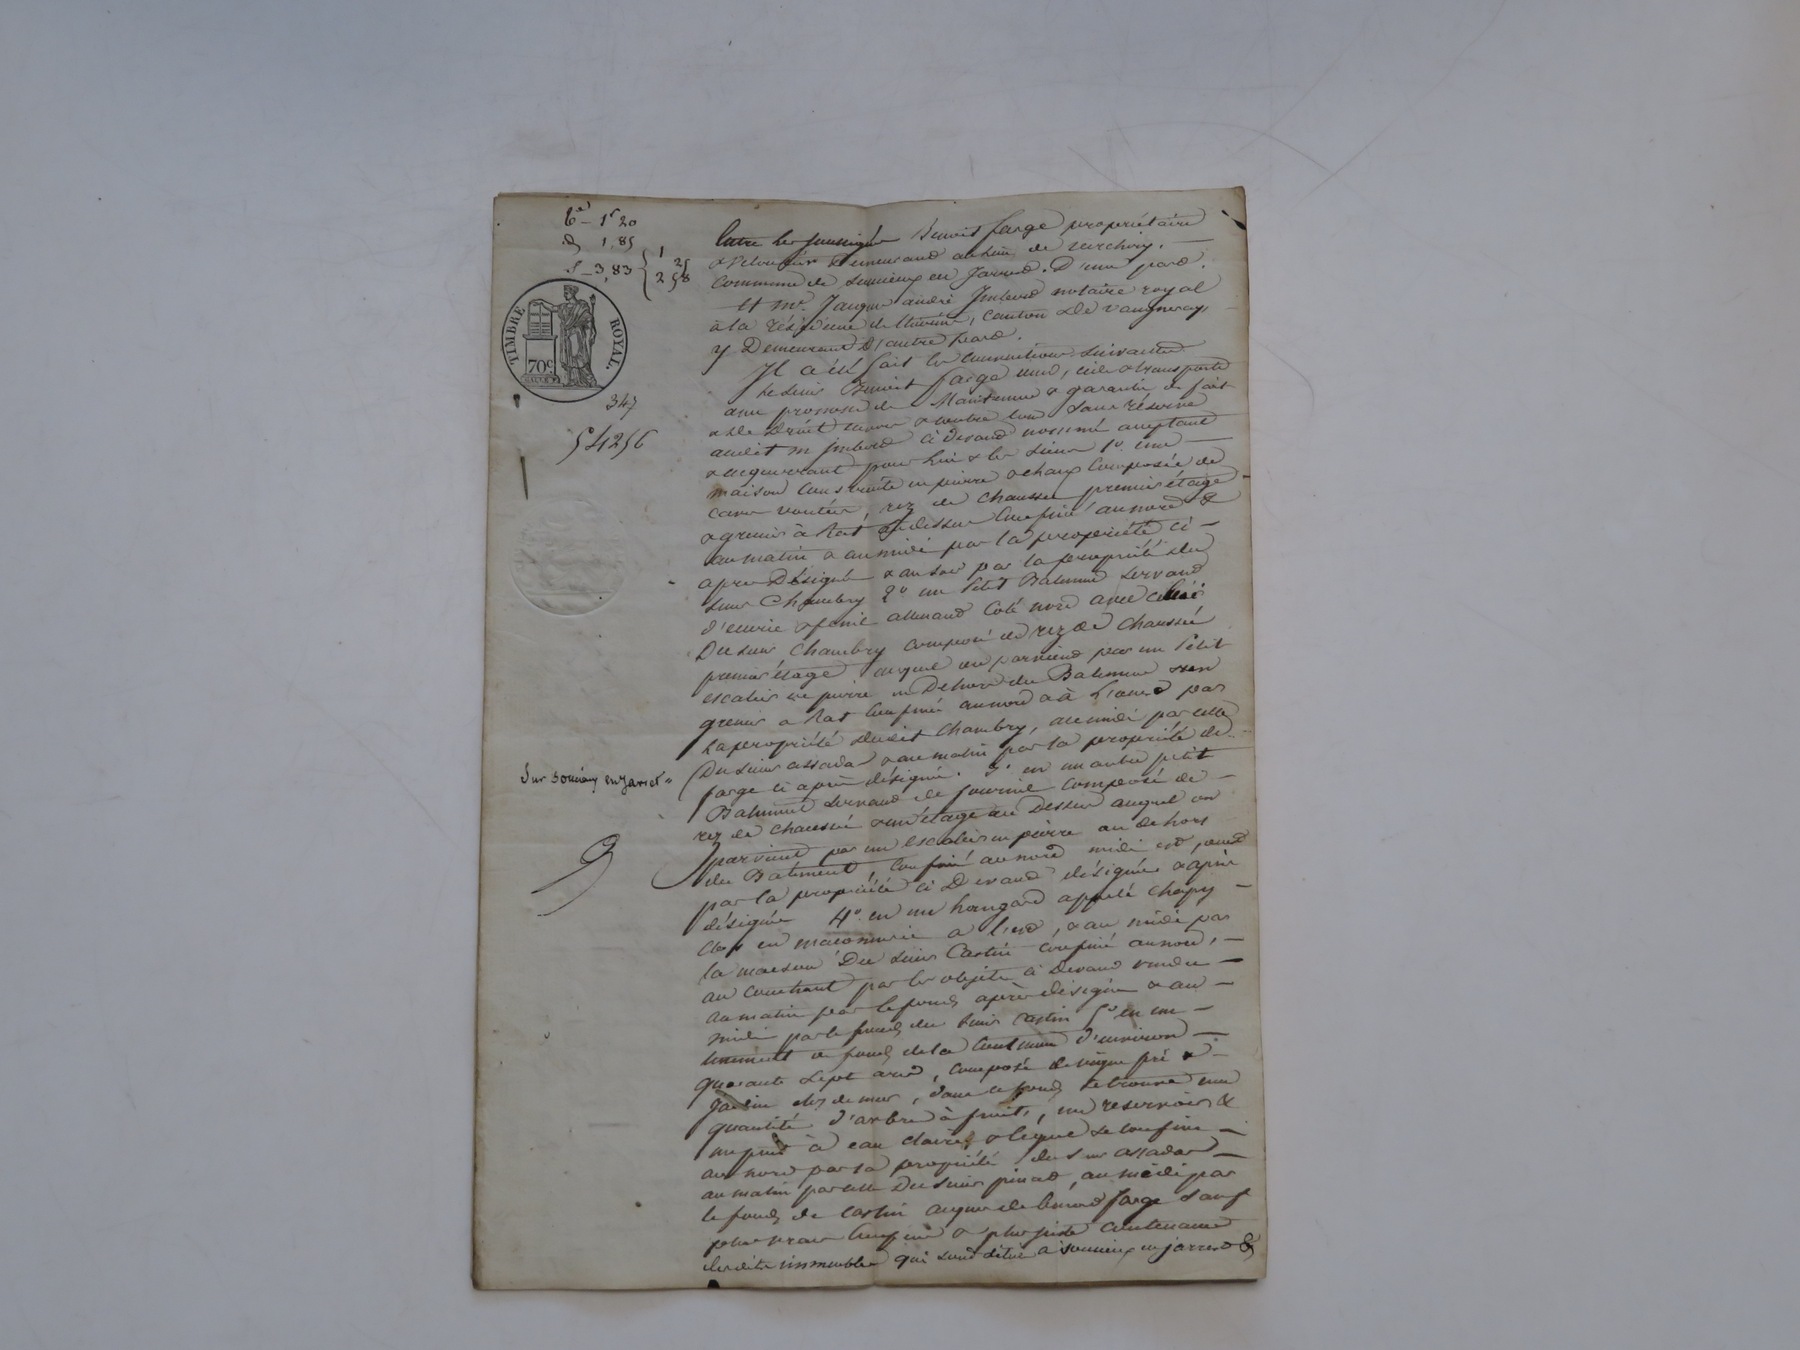 1f 20
1,85
3,83 { 1 25
2 58
TIMBRE ROYAL.
70c
347
Entre les soussignés Benoit farge propriétaire
& Demeurant au lieu de
Commune de en Jarrest. D'une part.
Et Me. Jacques andré Imberd notaire royal
à la résidence de canton de vaugneray,
y Demeurant D'autre part.
Il a été fait les conventions suivantes
Le sieur Benoit farge vend, cède & transporte
avec promesse de Maintenue & garantie de fait
& de Droit envers & contre tous sans réserve
audit m Imberd ci Devant nommé acceptant
& acquerrant pour lui & les siens 1o. une
maison construite en pierre & chaux Composée de
cave voutée, rez de chaussée premier étage
& grenier à Rat au dessus Confiné au nord &
au matin & au midi par la propriété ci-
apres Désignée & au soir par la propriété du
sieur Chambry 2o un petit Batiment servant
d'écurie & fenil attenant Coté nord avec celui
Du sieur Chambry composé de rez de chaussée
premier étage auquel on parvient par un petit
escalier en pierre en Dehors du Batiment
grenier a Rat Confiné au nord & à L'ouest par
La propriété dudit Chambry, au midi par celle
Du sieur assada & au matin par la propriété de
Sur Soucieu en Jarret
farge ci après désignée. 3o en un autre petit
Batiment servant de composé de
rez de chaussée & un étage au Dessus auquel on
parvient par un escalier en pierre au dehors
du Batiment, Confiné au nord midi et
par la propriété ci Devant désignée & après
désignée 4o en un hangard appelé Chapy
en maconnerie a & au midi par
la maison Du sieur Castin confiné au nord,
au couchant par les objets ci Devant vendus
au matin par le fonds après désigné & au
midi par le fonds du sieur Castin 5o en un
tènement de fonds de la Contenue d'environ
quarante sept ares, composé de vigne pré &
Jardin clos de mur, dans ce fonds se trouve une
quantité d'arbre à fruits, un reservoir &
un puits à eau claire, & lequel se confine
au nord par la propriété du sieur assada
au matin par celle Du sieur pinat, au midi par
le fonds de Castin acquis de benoit farge sauf
plus vrais Confins & plus juste contenance
desdits immeubles qui sont situé à soucieu en jarrest &